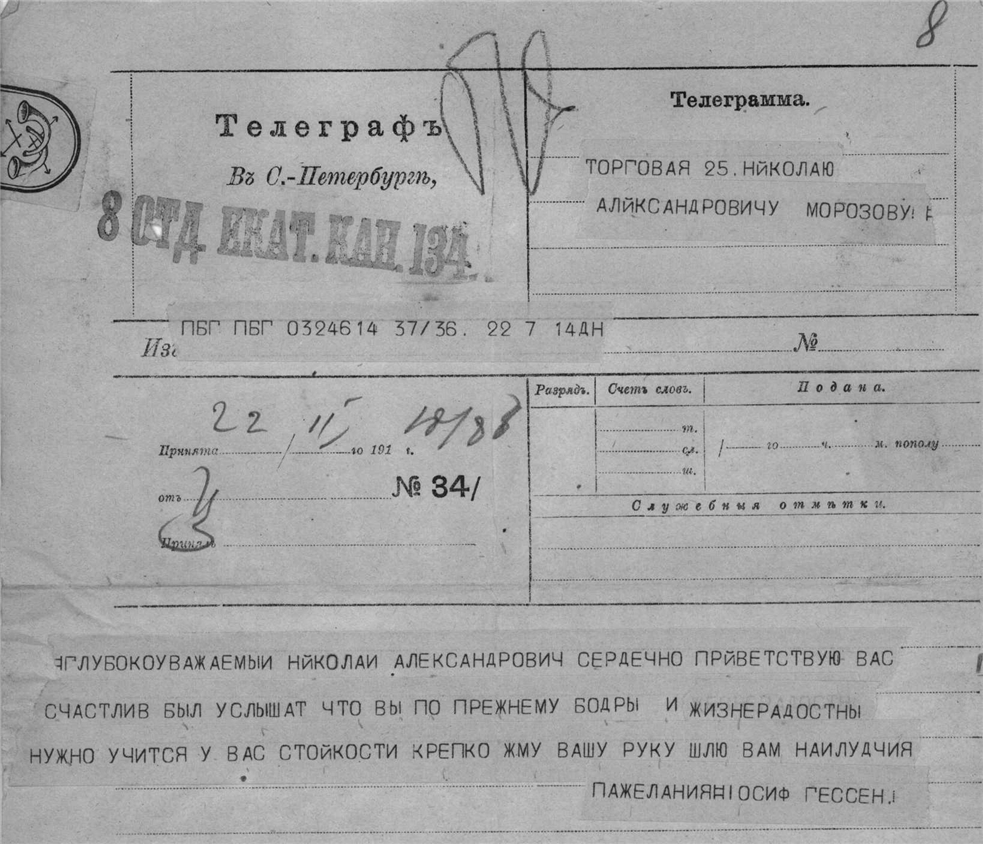 8
Телеграфъ
Въ С.-Петербургѣ,
8 ОТД. ЕКАТ. КАН. 134.
Телеграмма.
ТОРГОВАЯ 25. НЙКОЛАЮ
АЛЙКСАНДРОВИЧУ МОРОЗОВУ
ПБГ ПБГ 0324614 37/36. 22 7 14ДН
Из
№
22 / II 191 г.
Принята го
отъ
№ 34/
Принялъ
Разрядъ. Счетъ словъ. Подана.
т.
сл.
ш.
/ го ч. м. пополу
Служебныя отмѣтки.
ГЛУБОКОУВАЖАЕМЫИ НЙКОЛАИ АЛЕКСАНДРОВИЧ СЕРДЕЧНО ПРЙВЕТСТВУЮ ВАС
СЧАСТЛИВ БЫЛ УСЛЫШАТ ЧТО ВЫ ПО ПРЕЖНЕМУ БОДРЫ И ЖИЗНЕРАДОСТНЫ
НУЖНО УЧИТСЯ У ВАС СТОЙКОСТИ КРЕПКО ЖМУ ВАШУ РУКУ ШЛЮ ВАМ НАИЛУДЧИЯ
ПАЖЕЛАНИЯНІОСИФ ГЕССЕН